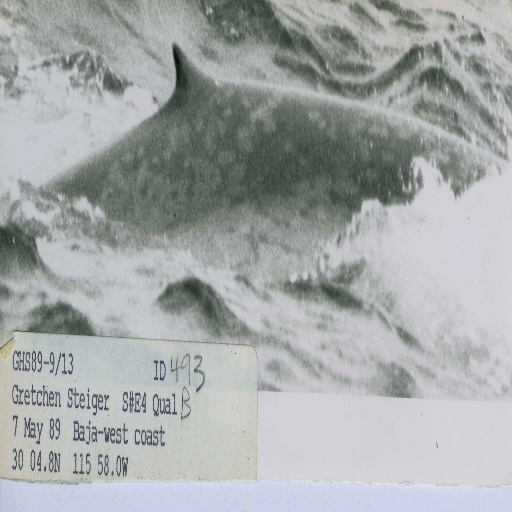 GHS89-9/13 ID 493
Gretchen Steiger S#E4 Qual B
7 May 89 Baja-west coast
30 04.8N 115 58.0W